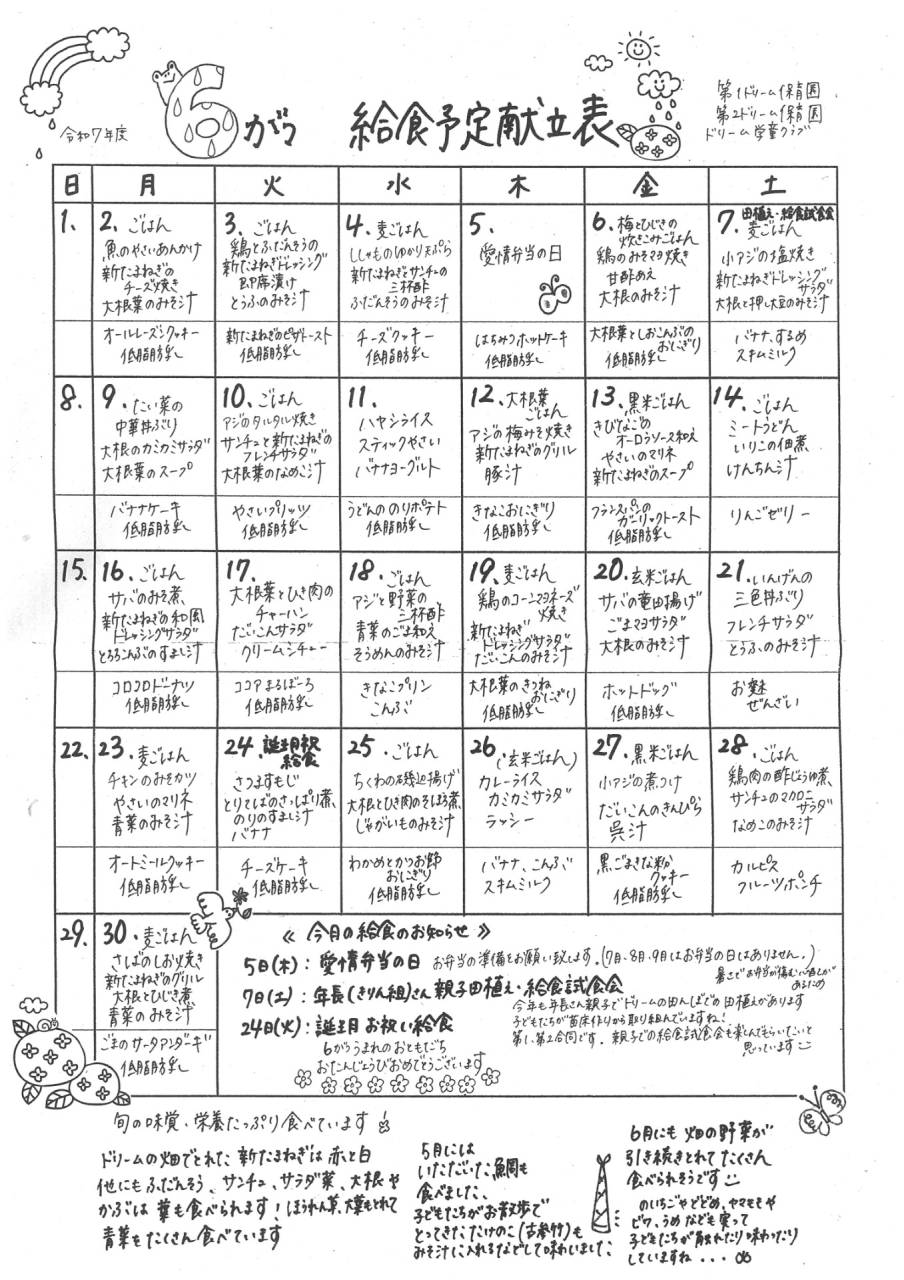 令和7年度
6がつ 給食予定献立表
第1ドリーム保育園
第2ドリーム保育園
ドリーム学童クラブ
日 月 火 水 木 金 土
1.
2. ごはん
魚のやさいあんかけ
新たまねぎの
チーズ焼き
大根葉のみそ汁
オールレーズンクッキー
低脂肪乳
3. ごはん
鶏とふだんそうの
新たまねぎドレッシング
即席漬け
とうふのみそ汁
新たまねぎのピザトースト
低脂肪乳
4. 麦ごはん
ししゃものゆかり天ぷら
新たまねぎとサンチュの
三杯酢
ふだんそうのみそ汁
チーズクッキー
低脂肪乳
5.
愛情弁当の日
はちみつホットケーキ
低脂肪乳
6. 梅とひじきの
炊きこみごはん
鶏のみそマヨ焼き
甘酢あえ
大根のみそ汁
大根葉としおこんぶの
おにぎり
低脂肪乳
7. 田植え・給食試食会
麦ごはん
小アジの塩焼き
新たまねぎドレッシング
サラダ
大根と押し大豆のみそ汁
バナナ、するめ
スキムミルク
8.
9. たい菜の
中華丼ぶり
大根のカミカミサラダ
大根葉のスープ
バナナケーキ
低脂肪乳
10. ごはん
アジのタルタル焼き
サンチュと新たまねぎの
フレンチサラダ
大根葉のなめこ汁
やさいプリッツ
低脂肪乳
11.
ハヤシライス
スティックやさい
バナナヨーグルト
うどんののりポテト
低脂肪乳
12. 大根葉
ごはん
アジの梅みそ焼き
新たまねぎのグリル
豚汁
きなこおにぎり
低脂肪乳
13. 黒米ごはん
きびなごの
オーロラソース和え
やさいのマリネ
新たまねぎのスープ
フランスパンの
ガーリックトースト
低脂肪乳
14. ごはん
ミートうどん
いりこの佃煮
けんちん汁
りんごゼリー
15.
16. ごはん
サバのみそ煮、
新たまねぎの和風
ドレッシングサラダ
とろろこんぶのすまし汁
コロコロドーナツ
低脂肪乳
17.
大根葉とひき肉の
チャーハン
だいこんサラダ
クリームシチュー
ココアまるぼーろ
低脂肪乳
18. ごはん
アジと野菜の
三杯酢
青菜のごま和え
そうめんのみそ汁
きなこプリン
こんぶ
19. 麦ごはん
鶏のコーンマヨネーズ
焼き
新たまねぎ
ドレッシングサラダ
だいこんのみそ汁
大根葉のきつね
おにぎり
低脂肪乳
20. 玄米ごはん
サバの竜田揚げ
ごまマヨサラダ
大根のみそ汁
ホットドッグ
低脂肪乳
21. いんげんの
三色丼ぶり
フレンチサラダ
とうふのみそ汁
お麩
ぜんざい
22.
23. 麦ごはん
チキンのみそカツ
やさいのマリネ
青菜のみそ汁
オートミールクッキー
低脂肪乳
24. 誕生月祝
給食
さつますもじ
とりてばのさっぱり煮、
のりのすまし汁
バナナ
チーズケーキ
低脂肪乳
25. ごはん
ちくわの磯辺揚げ
大根とひき肉のそぼろ煮、
じゃがいものみそ汁
わかめとかつお節
おにぎり
低脂肪乳
26. (玄米ごはん)
カレーライス
カミカミサラダ
ラッシー
バナナ、こんぶ
スキムミルク
27. 黒米ごはん
小アジの煮つけ
だいこんのきんぴら
呉汁
黒ごまきな粉
クッキー
低脂肪乳
28. ごはん
鶏肉の酢じょうゆ煮、
サンチュのマカロニ
サラダ
なめこのみそ汁
カルピス
フルーツポンチ
29.
30. 麦ごはん
さばのしお焼き
新たまねぎのグリル
大根とひじき煮
青菜のみそ汁
ごまのサータアンダーギー
低脂肪乳
≪ 今月の給食のお知らせ ≫
5日(木)：愛情弁当の日 お弁当の準備をお願い致します。(7月・8月・9月はお弁当の日はありません。)
暑さでお弁当が傷む心配が
あるため
7日(土)：年長(きりん組)さん親子田植え・給食試食会
今年も年長さん親子でドリームの田んぼでの田植えがあります
子どもたちが苗床作りから取り組んでいますね！
第1、第2合同です。親子での給食試食会も楽しんでもらいたいと
思っています
24日(火)：誕生月お祝い給食
6がつうまれのおともだち
おたんじょうびおめでとうございます
旬の味覚・栄養たっぷり食べています！
ドリームの畑でとれた新たまねぎは赤と白
他にもふだんそう、サンチュ、サラダ菜、大根や
かぶは葉も食べられます！ほうれん草、大葉もとれて
青菜もたくさん食べています
5月には
いただいた鯛も
食べました、
子どもたちがお散歩で
とってきたたけのこ(古参竹)も
みそ汁に入れるなどして味わいました
6月にも畑の野菜が
引き続きとれてたくさん
食べられそうです
のいちごやどどめ、ヤマモモや
ビワ、うめなども実って
子どもたちが触れたり味わったり
していますね・・・